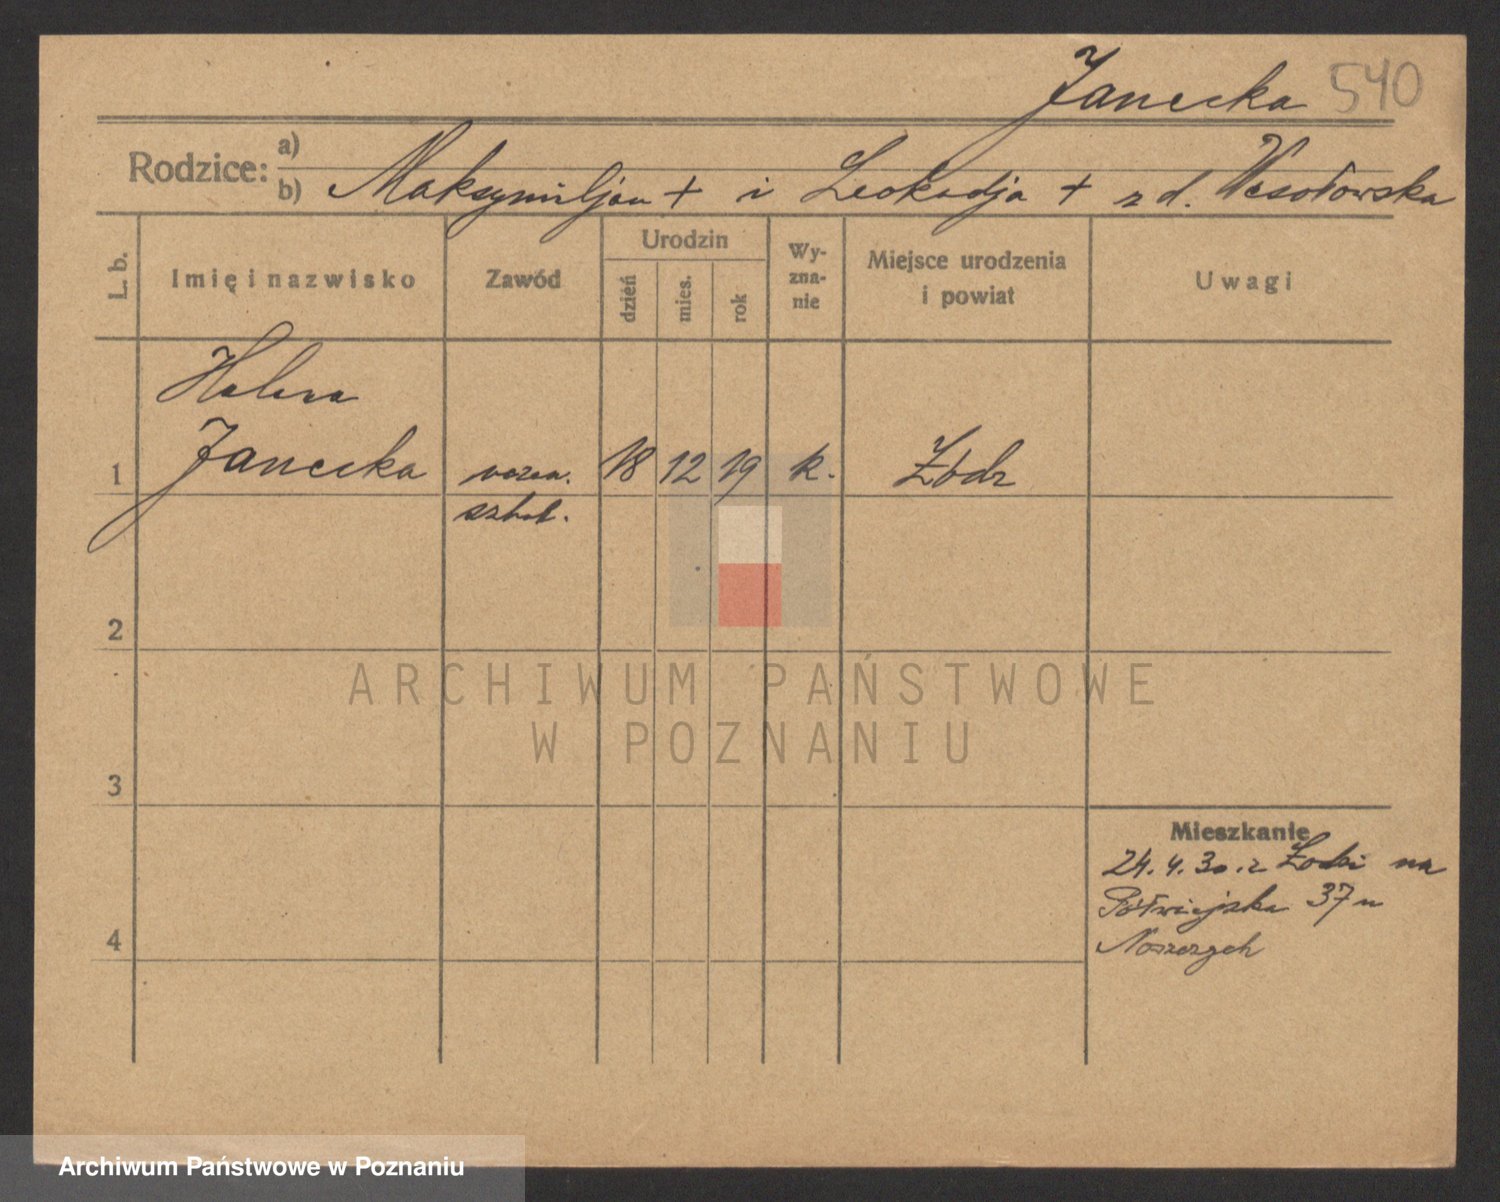 Janecka 540
Rodzice: a)
b) Maksymiljan + i Leokadja + z d. Wesołowska
L. b.
Imię i nazwisko
Zawód
Urodzin
dzień
mies.
rok
Wy-
zna-
nie
Miejsce urodzenia
i powiat
Uwagi
Helena
1 Janecka uczen. 18 12 19 k. Łódź
szkol.
2
3
4
Mieszkanie
24.4.30. z Łodzi na
Półwiejska 37 u
ARCHIWUM PAŃSTWOWE
W POZNANIU
Archiwum Państwowe w Poznaniu